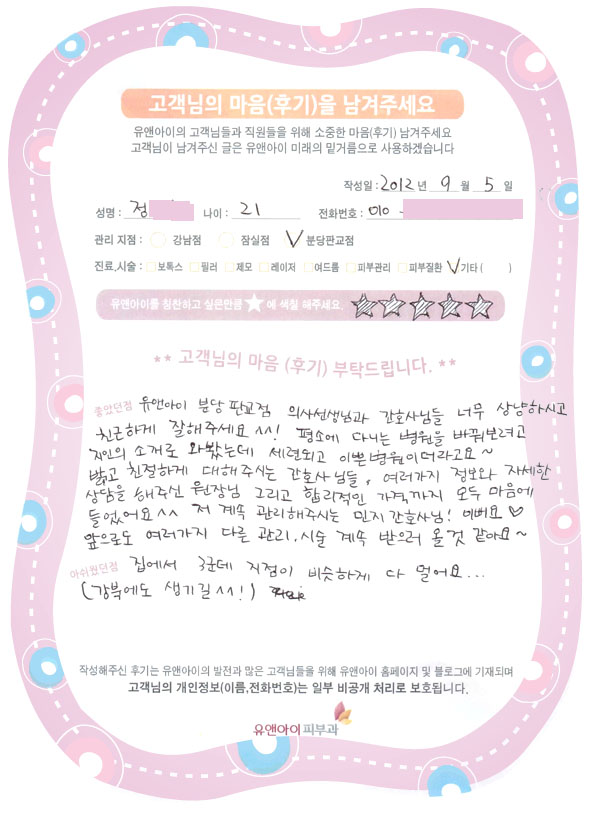 고객님의 마음(후기)을 남겨주세요
유앤아이의 고객님들과 직원들을 위해 소중한 마음(후기) 남겨주세요
고객님이 남겨주신 글은 유앤아이 미래의 밑거름으로 사용하겠습니다
작성일 : 2012 년 9 월 5 일
성명 : 정 나이 : 21 전화번호 : 010 -
관리 지점 : 강남점 잠실점 분당판교점
진료,시술 : 보톡스 필러 제모 레이저 여드름 피부관리 피부질환 기타 ( )
유앤아이를 칭찬하고 싶은만큼 ★ 에 색칠 해주세요. ★★★★★
** 고객님의 마음 (후기) 부탁드립니다. **
좋았던점 유앤아이 분당 판교점 의사선생님과 간호사님들 너무 상냥하시고
친근하게 잘해주세요 ^^! 평소에 다니는 병원을 바꿔보려고
지인의 소개로 와봤는데 세련되고 이쁜병원이더라고요~
밝고 친절하게 대해주시는 간호사님들, 여러가지 정보와 자세한
상담을 해주신 원장님 그리고 합리적인 가격까지 모두 마음에
들었어요^^ 저 계속 관리해주시는 민지 간호사님! 이뻐요♡
앞으로도 여러가지 다른 관리, 시술 계속 받으러 올것 같아요~
아쉬웠던점 집에서 3군데 지점이 비슷하게 다 멀어요...
(강북에도 생기길^^!)
작성해주신 후기는 유앤아이의 발전과 많은 고객님들을 위해 유앤아이 홈페이지 및 블로그에 기재되며
고객님의 개인정보(이름,전화번호)는 일부 비공개 처리로 보호됩니다.
유앤아이피부과